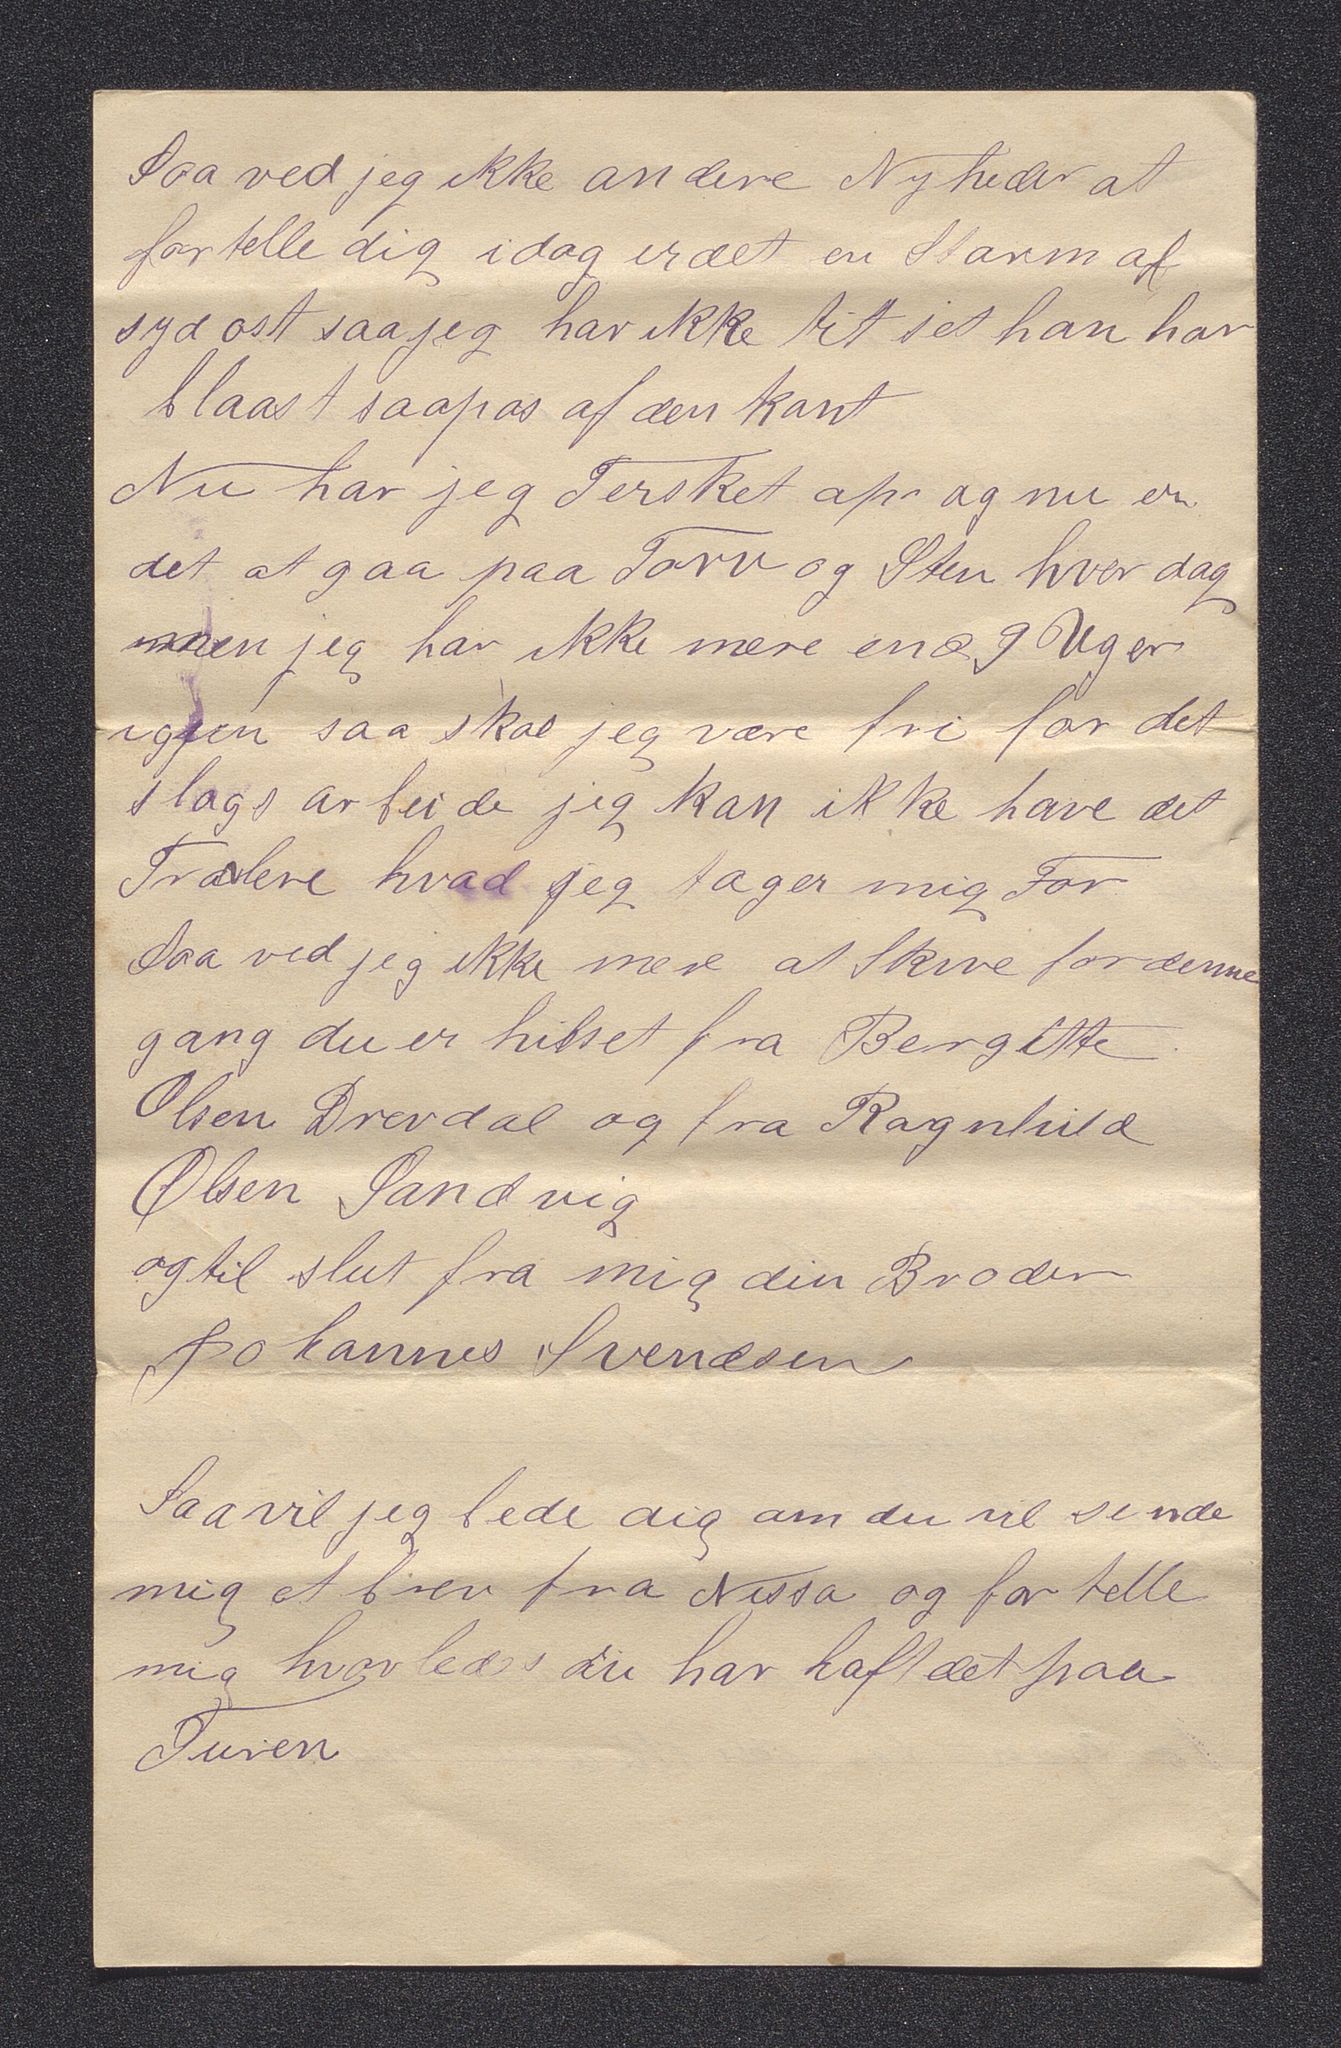 Saa ved jeg ikke andere Nyheder at
fortelle dig idag erdet en Storm af
syd ost saa jeg har ikke tit set han har
blaast saapas af den kant
Nu har jeg Tersket op og nu er
det at gaa paa Torv og Sten hver dag
men jeg har ikke mere end 9 Uger
igjen saa skal jeg være fri for det
slags arbeide jeg kan ikke have det
hvad jeg tager mig For
Saa ved jeg ikke mere at Skrive for denne
gang du er hilset fra Bergitte
Olsen Drevdal og fra Ragnhild
Olsen Sandvig
og til slut fra mig din Broder
Johannes Svendsen
Saa vil jeg bede dig om du vil sende
mig et brev fra Nissa og fortelle
mig hvorledes du har haft det paa
Turen